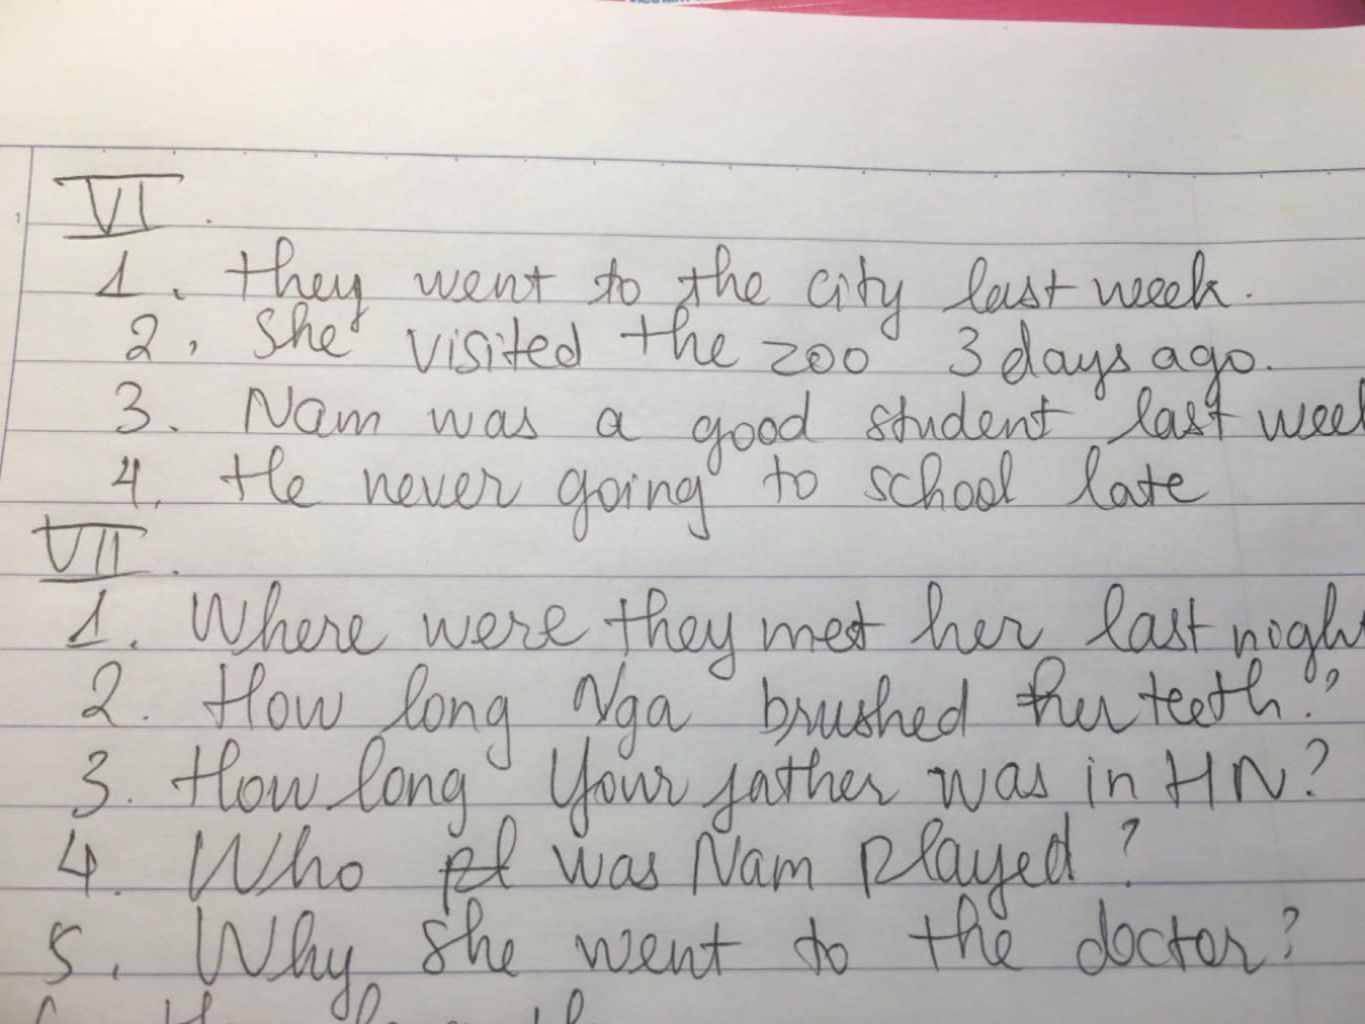 VI.
1. they went to the city last week.
2, She visited the zoo 3 days ago.
3. Nam was a good student last week
4. He never going to school late
VII.
1. Where were they met her last nigh
2. How long Nga brushed her teeth?
3. How long your father was in HN?
4. Who was Nam played?
5. Why she went to the doctor?